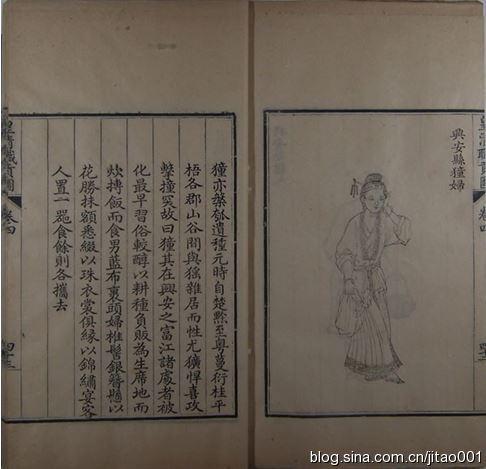 皇清職貢圖
卷四
興安縣獞婦
獞亦槃瓠遺種元時自楚黔至粤蔓衍桂平
梧各郡山谷間與猺雜居而性尤獷悍喜攻
擊撞突故曰獞其在興安之富江諸處者被
化最早習俗較醇以耕種負販為生席地而
炊摶飯而食男藍布裹頭婦椎髻銀簪懸以
花勝抹額悉綴以珠衣裳俱緣以錦繡宴客
人置一器食餘則各攜去
皇清職貢圖
卷四
blog.sina.com.cn/jitao001